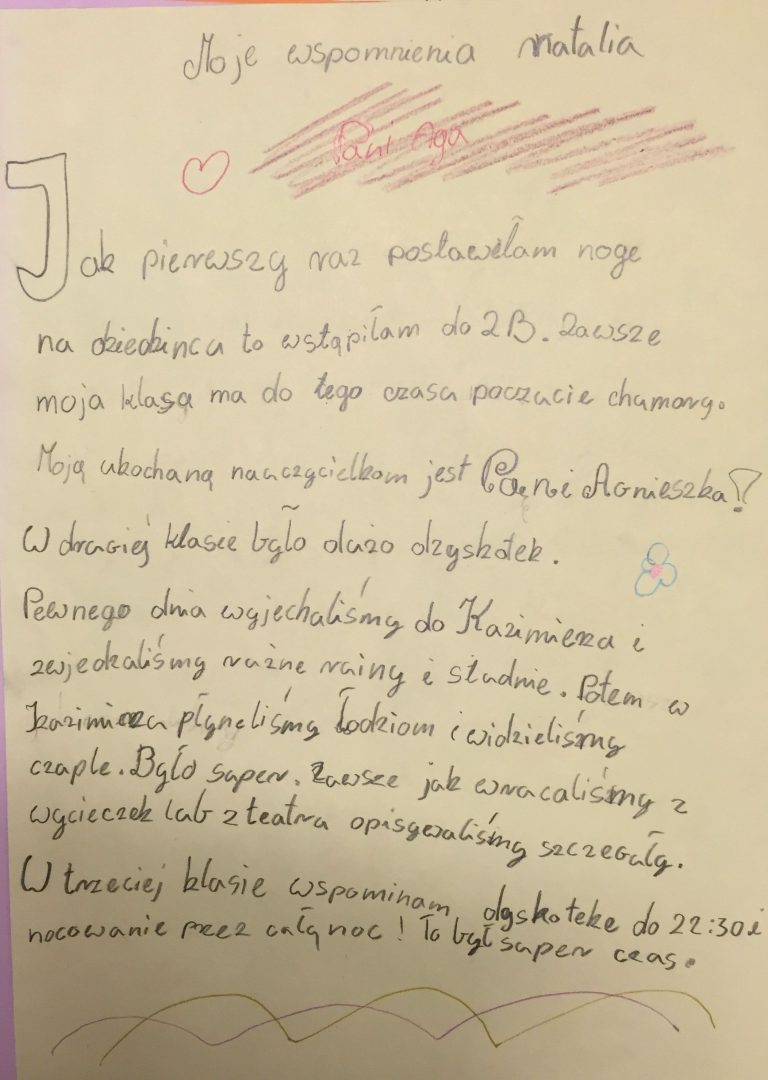 Moje wspomnienia Natalia
Pani Aga
Jak pierwszy raz postawiłam noge
na dziedzincu to wstąpiłam do 2B. Zawsze
moja klasa ma do tego czasu poczucie chumoru.
Moją ukochaną nauczycielkom jest Pani Agnieszka!
W drugiej klasie było dużo dzyskotek.
Pewnego dnia wyjechaliśmy do Kazimierza i
zwjedzaliśmy różne rainy i studnie. Potem w
Kazimierza płyneliśmy łodziom i widzieliśmy
czaple. Było super. Zawsze jak wracaliśmy z
wycieczek lub z teatru opisywaliśmy szczeguły.
W trzeciej klasie wspominam dyskoteke do 22:30 i
nocowanie przez całą noc! To był super czas.